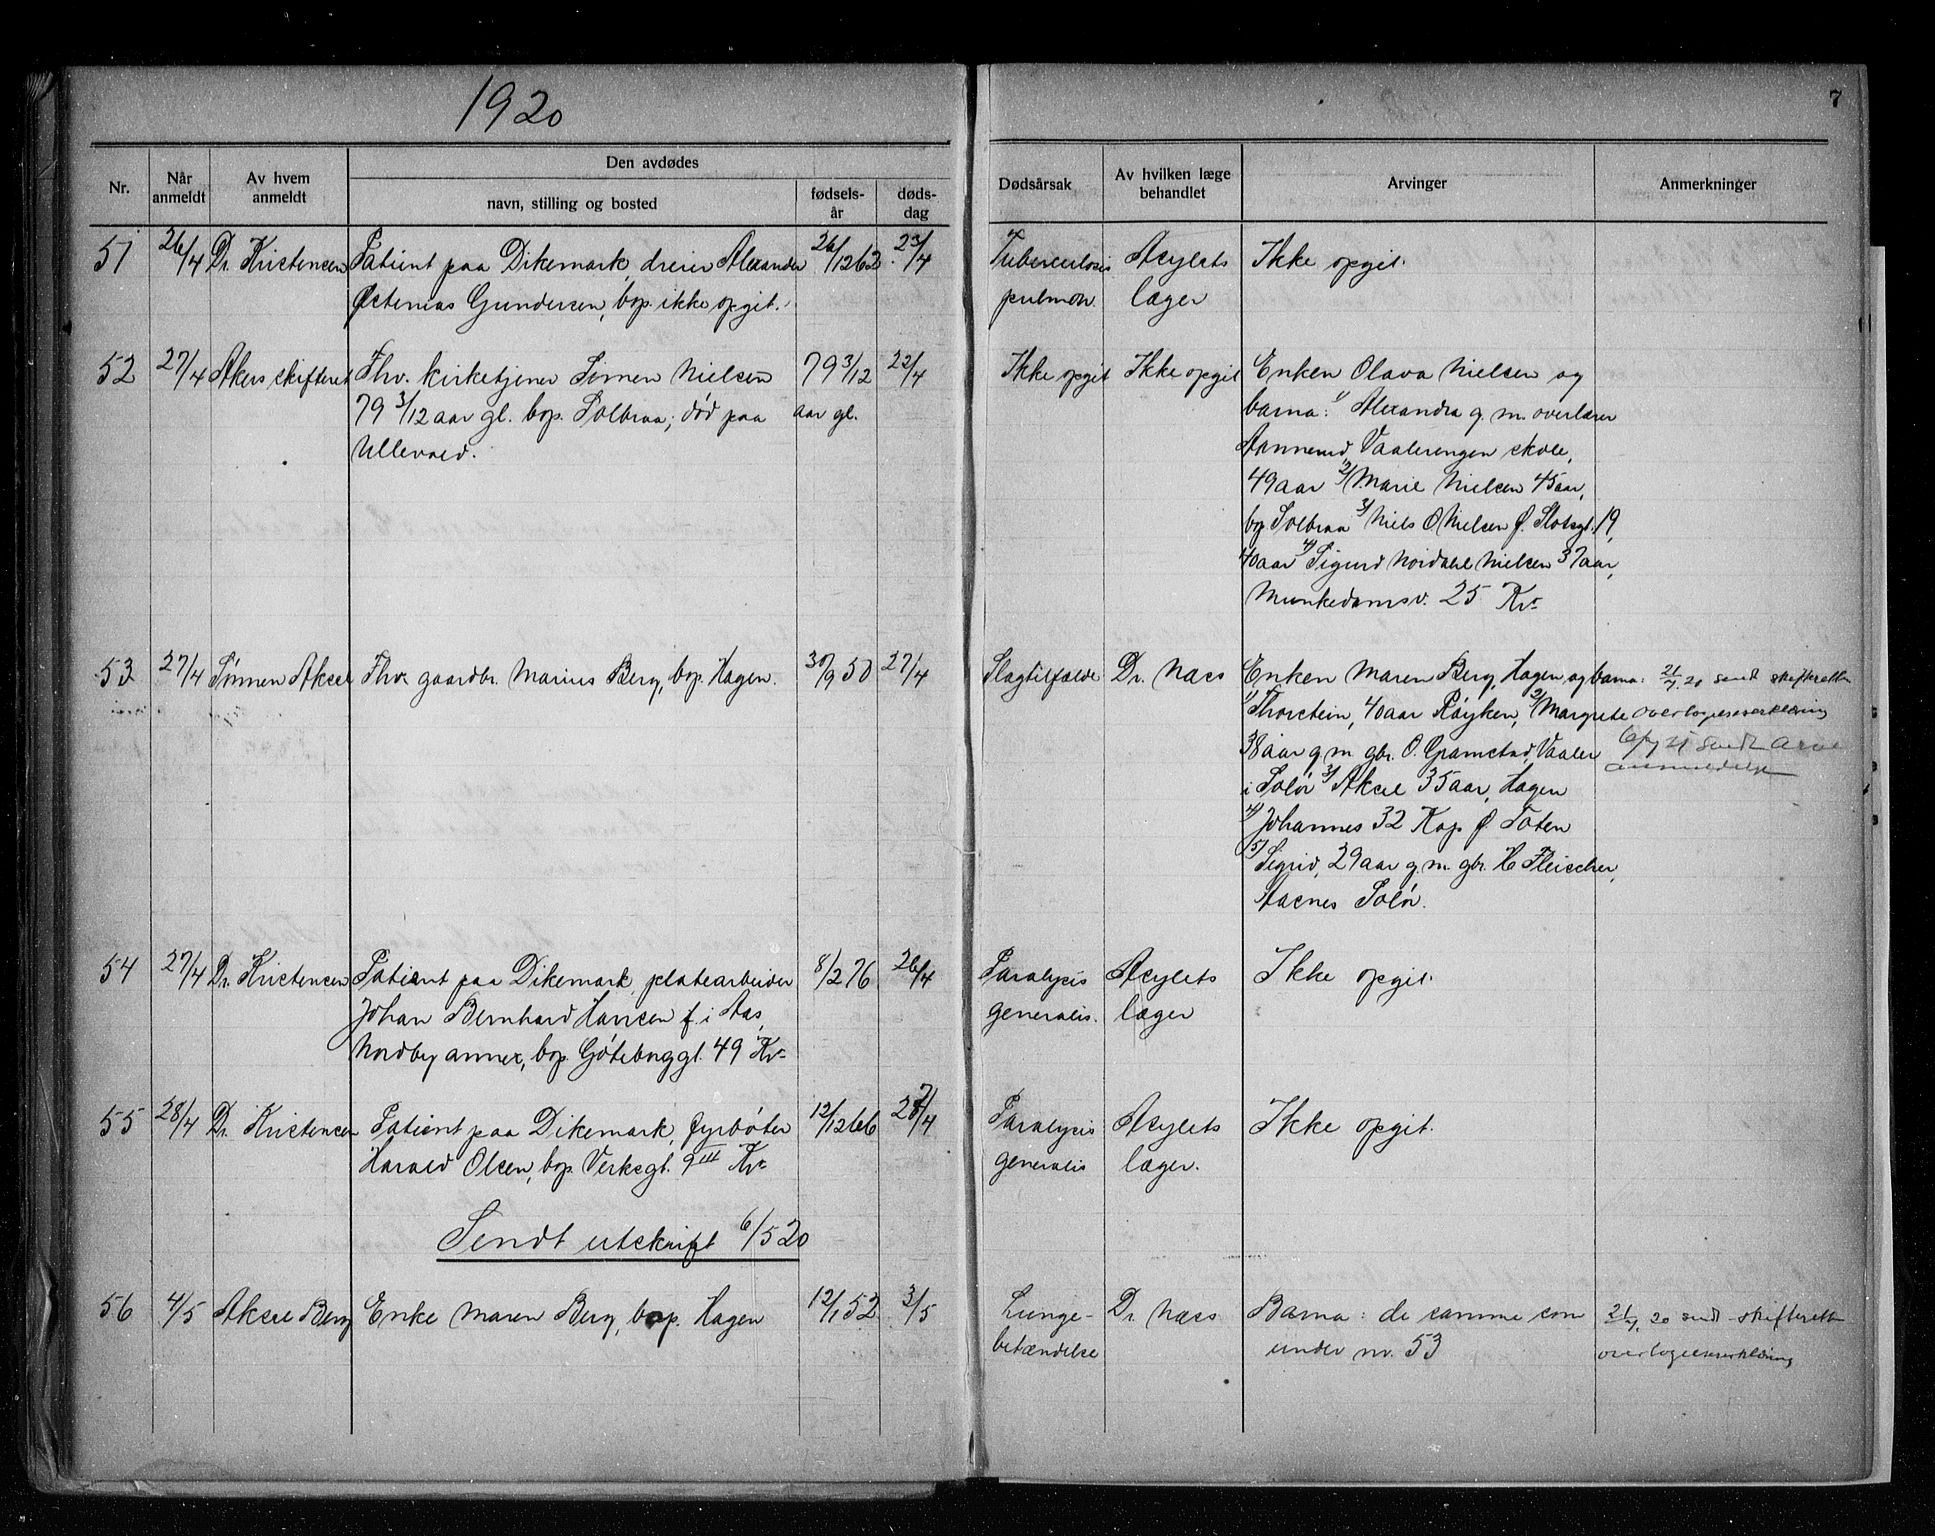 1920
7
Nr.
Når anmeldt
Av hvem anmeldt
Den avdødes
navn, stilling og bosted
fødsels-år
døds-dag
Dødsårsak
Av hvilken læge behandlet
Arvinger
Anmerkninger
51 26/4 Dr. Kristensen Patient paa Dikemark, dreier Alexander 26/12 62 23/4 Tuberculosis Asylets Ikke opgit.
Østenias Gundersen, bop. ikke opgit. pulmon. læger
52 27/4 Akers skifteret Fhv. kirketjener Simen Nielsen 79 3/12 22/4 Ikke opgit Ikke opgit Enken Olava Nielsen og
79 3/12 aar gl. bop. Solbraa, død paa aar gl. barna: 1/ Alexandra g. m. overlærer
Ullevaal. Aannerud, Vaalerengen skole,
49 aar 2/ Marie Nielsen 45 aar,
bop. Solbraa 3/ Niels O Nielsen Ø. Slotsgt. 19,
40 aar 4/ Sigurd Nordahl Nielsen 37 aar,
Munkedamsv. 25 Kr.
53 27/4 Sønnen Aksel Fhv. gaardbr. Marius Berg, bop. Hagen. 30/9 50 27/4 Slagtilfælde Dr. Næss Enken Maren Berg, Hagen og barna: 21/7. 20 sendt skifteretten
1/ Thorstein, 40 aar Røyken, 2/ Margrete overtagelseserklæring
38 aar g. m. gbr. O. Gramstad, Vaaler sendt
i Solør 3/ Aksel 35 aar, Hagen
4/ Johannes 32 Kap Ø. Toten
5/ Sigrid, 29 aar g. m. gbr. H Fleischer,
Aasnes Solør.
54 27/4 Dr. Kristensen Patient paa Dikemark, platearbeider 8/2 76 26/4 Paralysis Asylets Ikke opgit.
Johan Bernhard Hansen f. i Aas, generalis. læger
Nordby annex, bop. Gøteborggt. 49 Kr.
55 28/4 Dr. Kristensen Patient paa Dikemark, fyrbøter 12/12 66 27/4 Paralysis Asylets Ikke opgit.
Harald Olsen, bop. Verksgt. 9 III Kr. generalis læger.
Sendt utskrift 6/5 20
56 4/5 Aksel Berg Enke Maren Berg, bop. Hagen 12/1 52 3/5 Lunge- Dr. Næss Barna: de samme som 21/7. 20 sendt skifteretten
betændelse under nr. 53 overtagelseserklæring